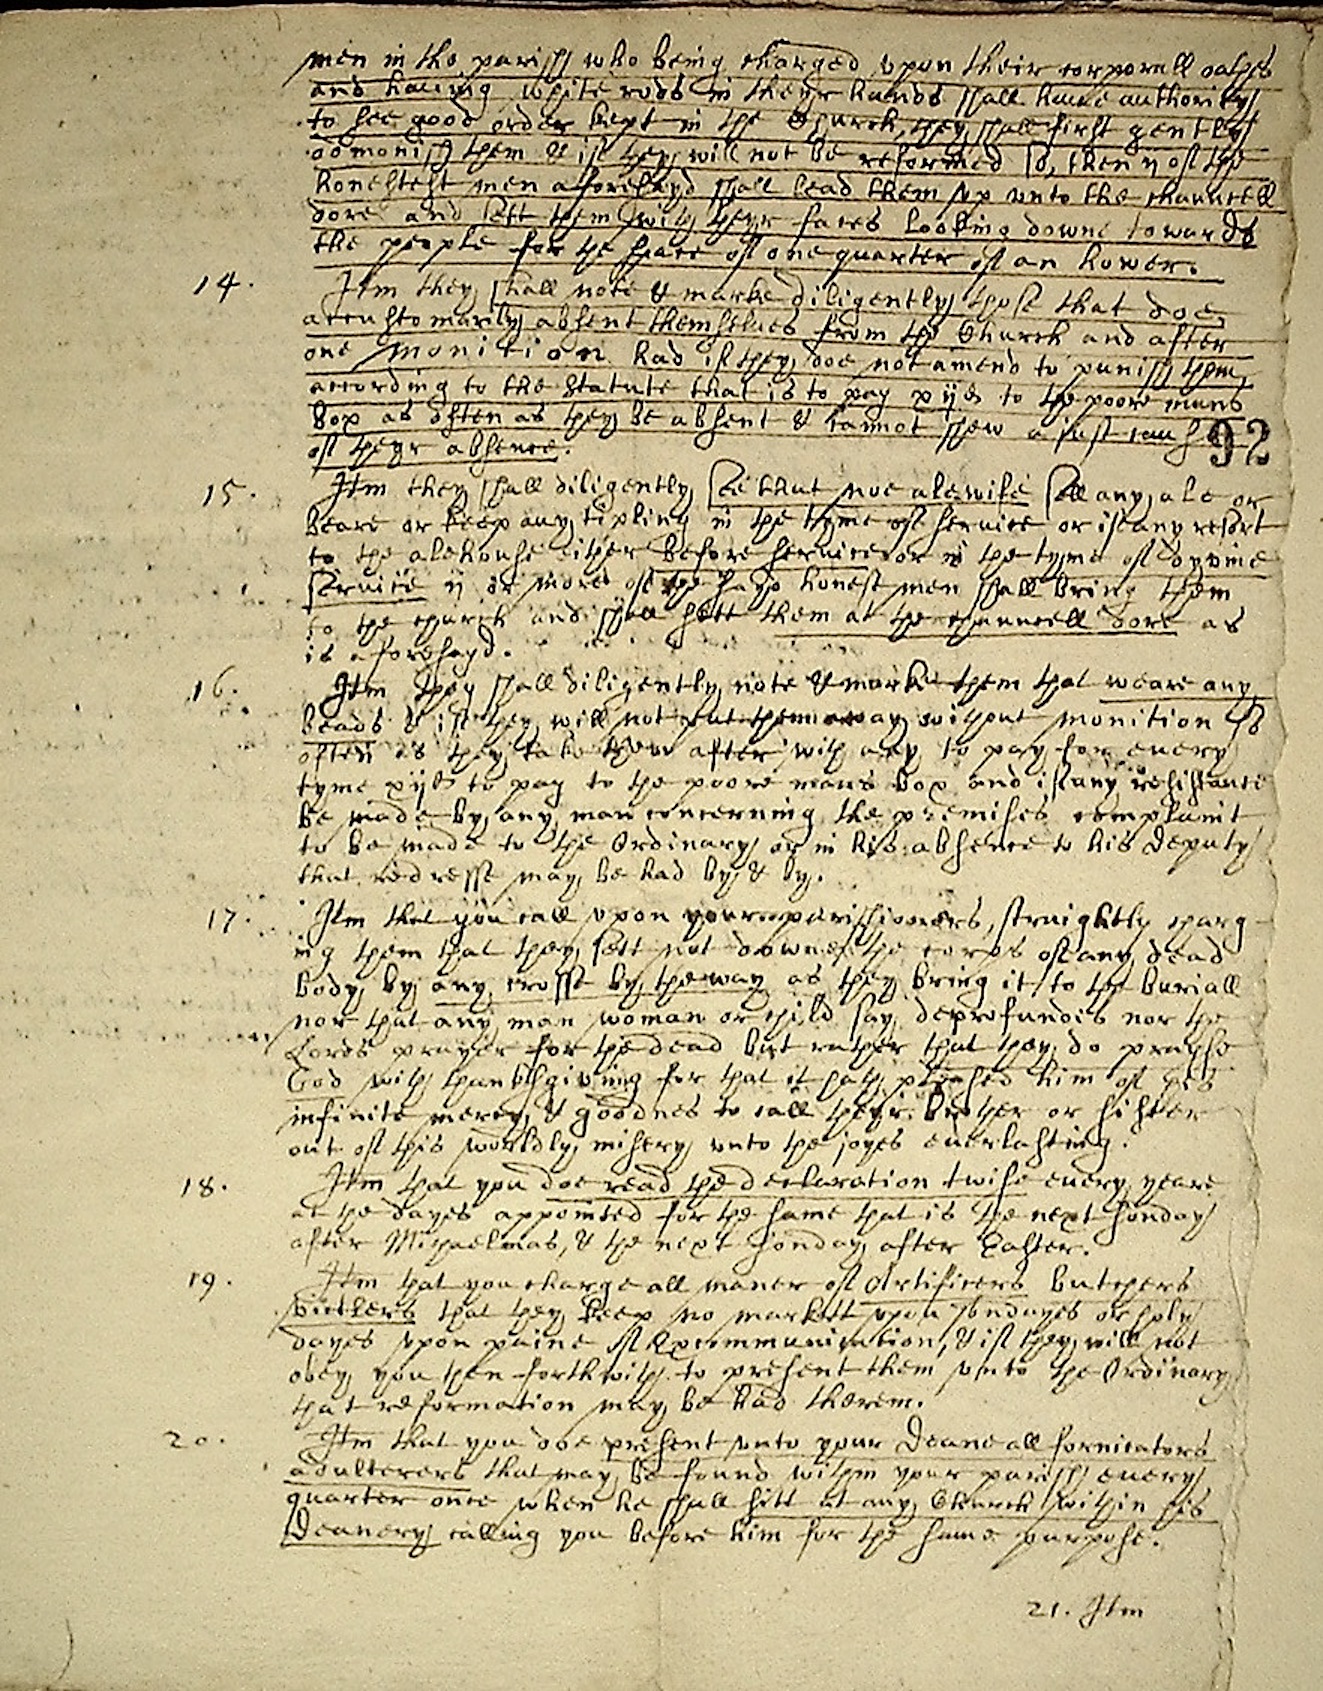 men in the parish who being charged upon their corporall oathes
and having white rods in theyr hands shall have authority
to see good order kept in the Church, they shall first gently
admonish them & if they will not be reformed so, then ij of the
honestest men aforesayd shall lead them up unto the chauncell
dore and sett them with theyr faces looking downe towards
the people for the space of one quarter of an hower.
14. Itm they shall note & marke diligently those that doe
accustomarily absent themselves from the Church and after
one monition had if they doe not amend to punish them
according to the statute that is to pay xijd to the poore mans
box as often as they be absent & cannot shew a just cause
92
of theyr absence.
15. Itm they shall diligently see that noe alewife sell any ale or
beare or keep any tipling in the tyme of service or if any resort
to the alehouse either before service or in the tyme of dyvine
service ij or more of the sayd honest men shall bring them
to the church and shall sett them at the chauncell dore as
is aforesayd.
16. Itm they shall diligently note & marke them that weare any
beads & if they will not put them away without monition so
often as they take them after with any to pay for every
tyme xijd to pay to the poore mans box and if any resistance
be made by any man concerning the premises complaint
to be made to the Ordinary or in his absence to his Deputy
that redresse may be had by & by.
17. Itm that you call upon your parishioners, straightly charg-
ing them that they sett not downe the corps of any dead
body by any crosse by the way as they bring it to the buriall
nor that any man woman or child say deprofundis nor the
Lords prayer for the dead but rather that they do prayse
God with thanksgiving for that it hath pleased him of his
infinite mercy & goodnes to call theyr brother or sister
out of this worldly misery unto the joyes everlasting.
18. Itm that you doe read the declaration twise every yeare
at the dayes appointed for the same that is the next sonday
after Michaelmas, & the next sonday after Easter.
19. Itm that you charge all maner of Artificers butchers
vitlers that they keep no markett upon sondayes or holy
dayes upon paine of Excommunication, & if they will not
obey you then forthwith to present them unto the Ordinary
that reformation may be had therein.
20. Itm that you doe present unto your Deane all fornicators
adulterers that may be found within your parish every
quarter once when he shall sitt at any Church within his
Deanery calling you before him for the same purpose.
21. Itm